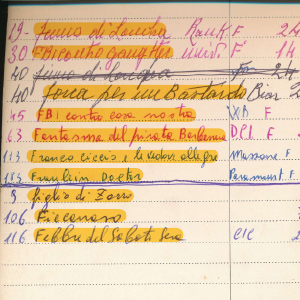 19- Fumo di Londra Rank F 24
30 FBI contro gangster univ. F 14
40 Fumo di Londra Fox 24
40 Forca per un Bastardo Bior 2
45 FBI contro cosa nostra WB F
63 Fantasma del pirata Barbanera D.C.I. F
113 Franco Ciccio e le vedove allegre Massone F
183 Fraulein Doctor Paramount F
9 figlio di Zorro
106 Ficcanaso
116 Febbre del Sabato Sera CIC 2